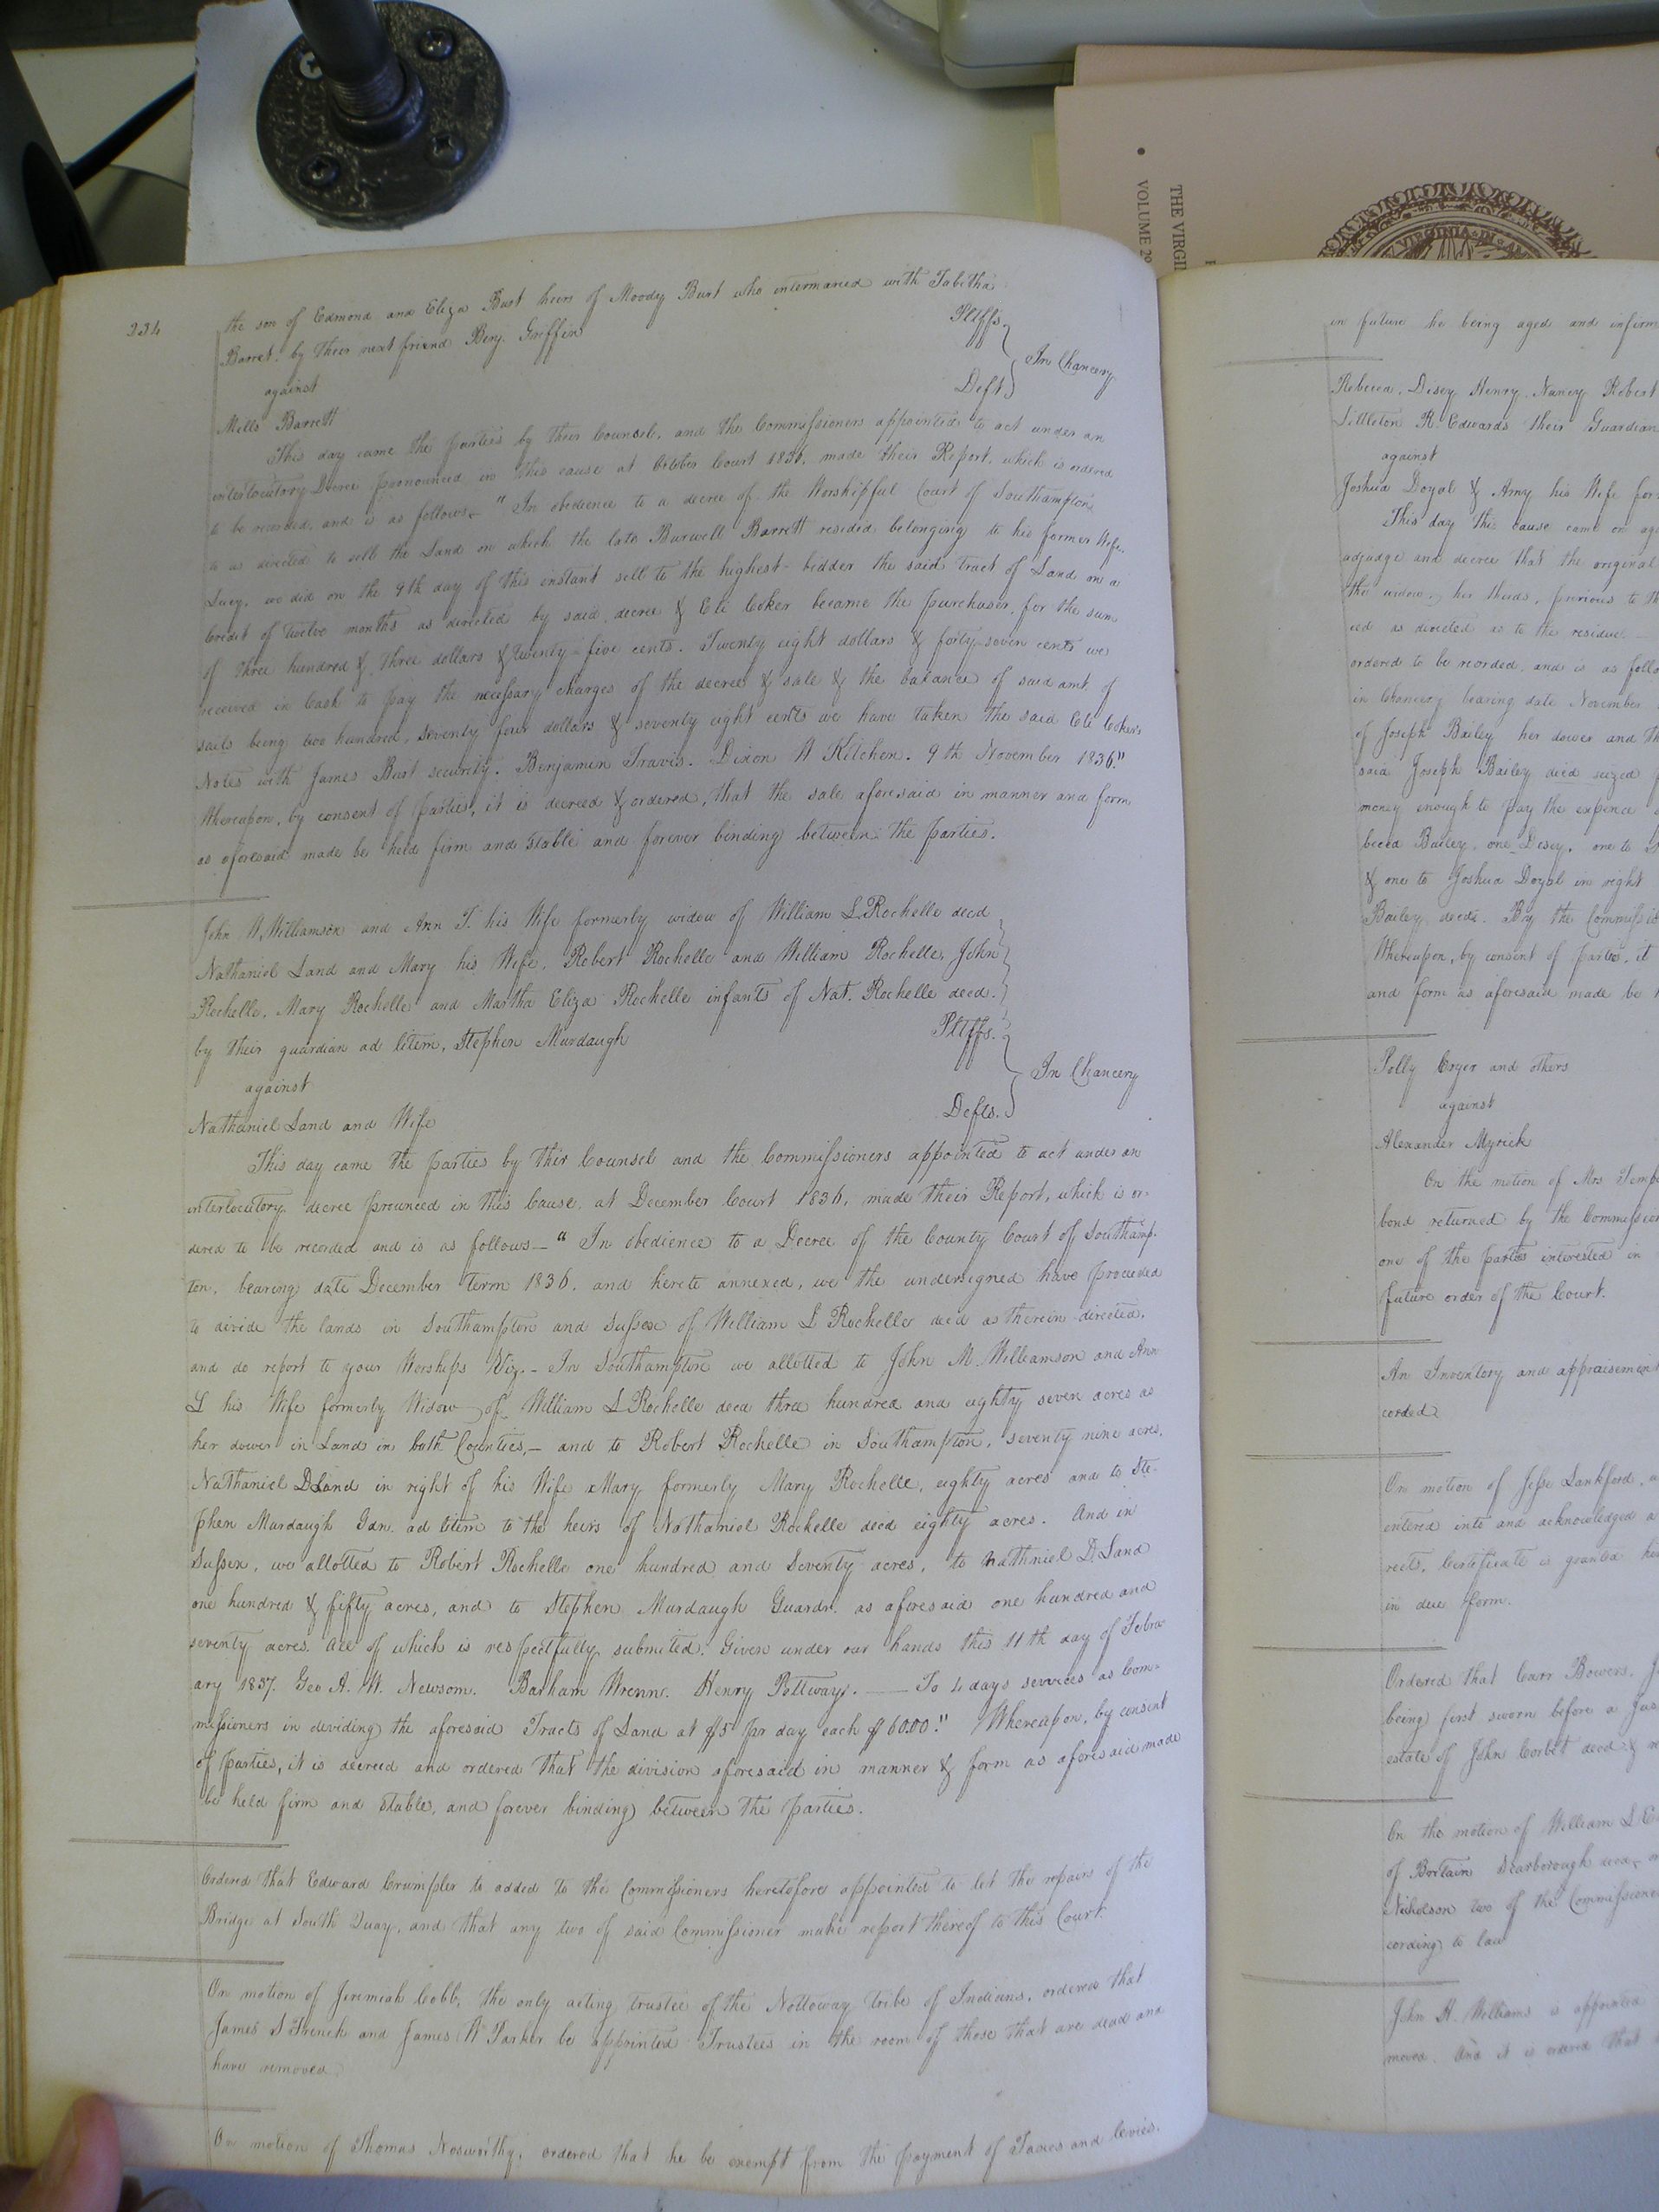 THE VIRGI
VOLUME 29
VIRGINIA IN
234
the son of Edmond and Eliza Burt heirs of Moody Burt who intermaried with Tabitha
Barret. by their next friend Benj. Griffin Pltffs.
against In Chancery
Mells Barrett Deft
This day came the parties by their Counsel, and the Commissioners appointed to act under an
interlocutory Decree pronounced in this cause at October Court 1836, made their Report, which is ordered
to be recorded, and is as follows— "In obedience to a decree of the Worshipful Court of Southampton,
to us directed to sell the Land on which the late Burwell Barrett resided belonging to his former Wife,
Lucy, we did on the 9th day of this instant sell to the highest bidder the said tract of Land on a
Credit of twelve months as directed by said decree & Eli Coker became the purchaser, for the sum
of three hundred & three dollars & twenty-five cents. Twenty eight dollars & forty-seven cents we
received in Cash to pay the necessary charges of the decree & sale & the balance of said amt. of
sails being two hundred, seventy four dollars & seventy eight cents we have taken the said Eli Coker's
Notes with James Burt security. Benjamin Travis. Dixon A Kitchen. 9th November 1836."
Whereupon, by consent of Parties, it is decreed & ordered, that the sale aforesaid in manner and form
as aforesaid made be held firm and stable and forever binding between the parties.
John W. Williamson and Ann T. his Wife formerly widow of William L. Rochelle decd
Nathaniel Land and Mary his Wife, Robert Rochelle and William Rochelle, John
Rochelle, Mary Rochelle and Martha Eliza Rochelle infants of Nat. Rochelle decd.
by their guardian ad litem, Stephen Murdaugh Pltffs.
against In Chancery
Nathaniel Land and Wife Defts.
This day came the parties by thir Counsel and the Commissioners appointed to act under an
interlocutory decree prounced in this Cause, at December Court 1836, made their Report, which is or-
dered to be recorded and is as follows— "In obedience to a Decree of the County Court of Southamp-
ton, bearing date December term 1836, and hereto annexed, we the undersigned have proceeded
to divide the lands in Southampton and Sussex of William L Rochelle decd as therein directed,
and do report to your Worships Viz.— In Southampton we allotted to John M. Williamson and Ann
L his Wife formerly Widow of William L Rochelle decd three hundred and eighty seven acres as
her dower in Land in both Counties,— and to Robert Rochelle in Southampton, seventy nine acres,
Nathaniel D Land in right of his Wife Mary formerly Mary Rochelle, eighty acres and to Ste-
phen Murdaugh Gdn. ad litem to the heirs of Nathaniel Rochelle decd eighty acres. And in
Sussex, we allotted to Robert Rochelle one hundred and seventy acres, to nathniel D Land
one hundred & fifty acres, and to Stephen Murdaugh Guardn. as aforesaid one hundred and
seventy acres. all of which is respectfully submited. Given under our hands this 11th day of Febru-
ary 1837. Geo A. W. Newsom. Barham Wrenn. Henry Pettway. — To 4 days services as Com-
missioners in deviding the aforesaid Tracts of Land at $5 pr day each $60.00." Whereupon, by consent
of parties, it is decreed and ordered that the division aforesaid in manner & form as aforesaid made
be held firm and stable, and forever binding between the parties.
Ordered that Edward Crumpler to added to the Commissioners heretofore appointed to let the repairs of the
Bridge at South Quay, and that any two of said Commissioner make report thereof to this Court.
On motion of Jeremiah Cobb, the only acting trustee of the Nottoway tribe of Indians, ordered that
James S French and James W Parker be appointed Trustees in the room of those that are dead and
have removed
On motion of Thomas Nosworthy, ordered that he be exempt from the payment of Taxes and levies.
in future he being aged and infirm
Rebecca, Disey, Henry, Nancy, Robert
Littleton R. Edwards their Guardian
against
Joshua Doyal & Amy his Wife for
This day this cause came on aga
adjudge and decree that the original
the widow, her thirds, previous to th
ed as directed as to the residue—
ordered to be recorded, and is as follo
in Chancery bearing date November
of Joseph Bailey her dower and th
said Joseph Bailey died seized
money enough to pay the expence
becca Bailey, one Disey, one to
& one to Joshua Doyal in right
Bailey decd. By the Commissio
Whereupon, by consent of parties, it
and form as aforesaid made be h
Polly Cryer and others
against
Alexander Myrick
On the motion of Mrs Temp
bond returned by the Commission
one of the parties interested in
future order of the Court.
An Inventory and appraisement
corded
On motion of Jesse Lankford,
entered into and acknowledged a
rects, Certificate is granted him
in due form.
Ordered that Carr Bowers, J
being first sworn before a Jus
estate of John Corbet decd &
On the motion of William L E
of Scarborough decd,
Nicholson two of the Commissione
cording to law
John H. Williams is appointed
moved. And it is ordered that